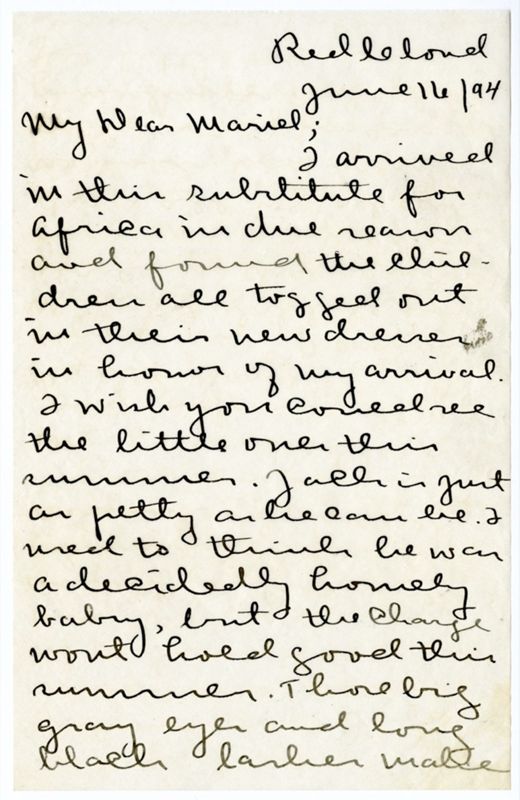 Red Cloud
June 16/94
My Dear Mariel;
I arrived
in this substitute for
Africa in due season
and found the chil-
dren all togged out
in their new dresses
in honor of my arrival.
I wish you could see
the little ones this
summer. Jack is just
as petty as he can be. I
used to think he was
a decidedly homely
baby, but the charge
wont hold good this
summer. Those big
gray eyes and long
black lashes make